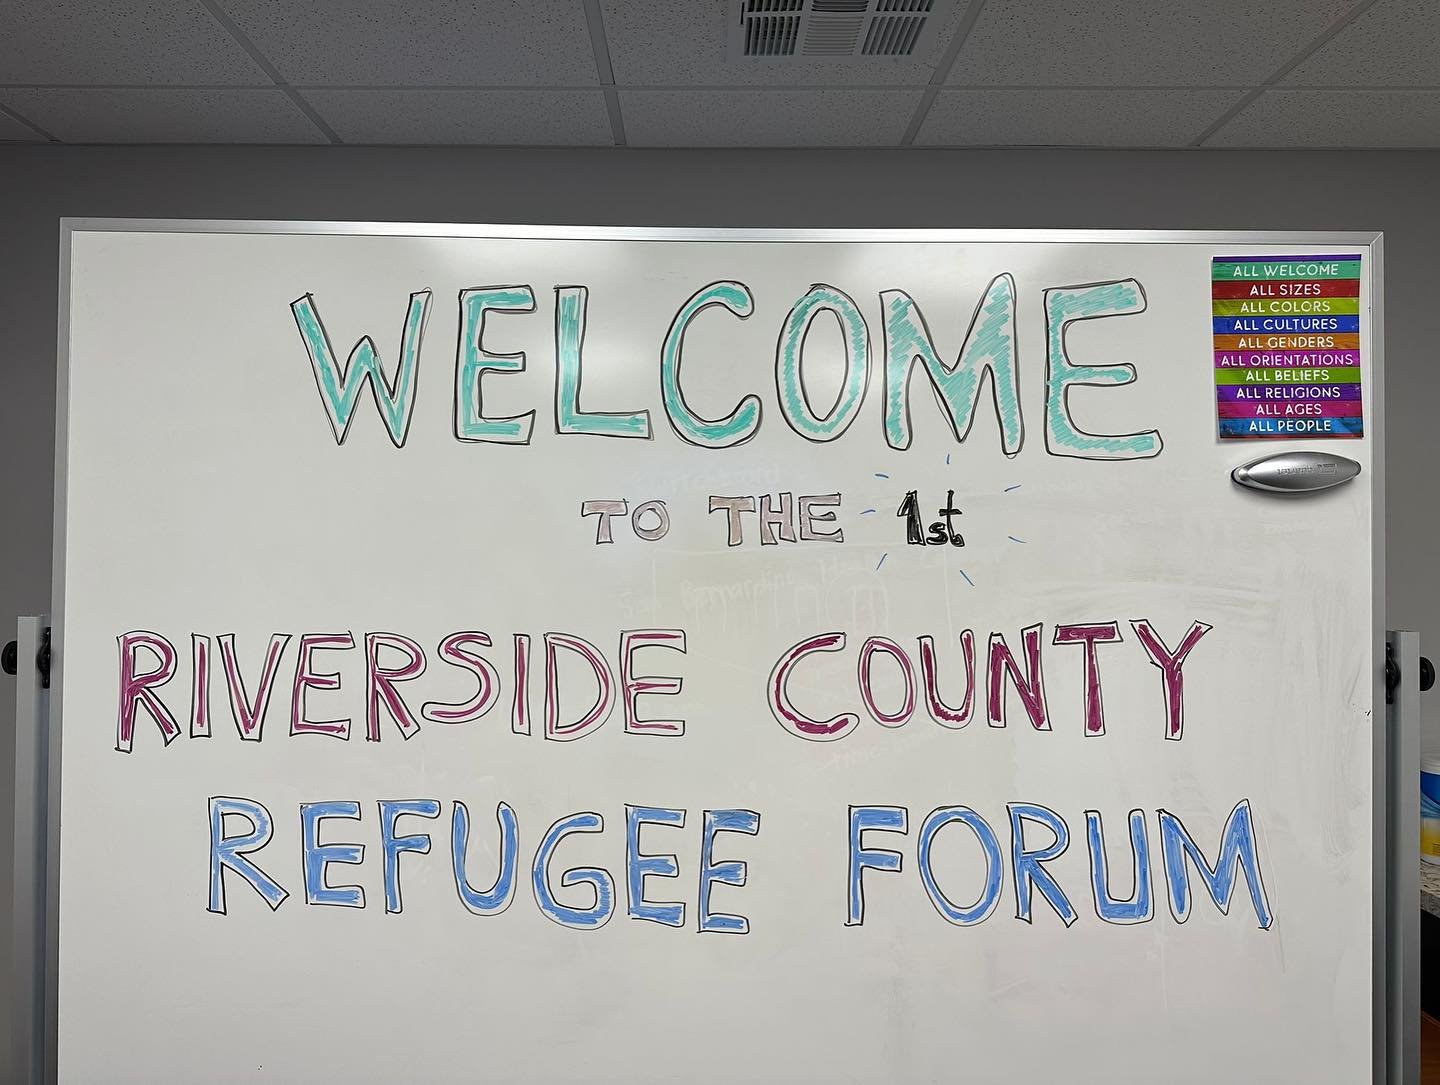 WELCOME
TO THE 1st
RIVERSIDE COUNTY
REFUGEE FORUM
ALL WELCOME
ALL SIZES
ALL COLORS
ALL CULTURES
ALL GENDERS
ALL ORIENTATIONS
ALL BELIEFS
ALL RELIGIONS
ALL AGES
ALL PEOPLE